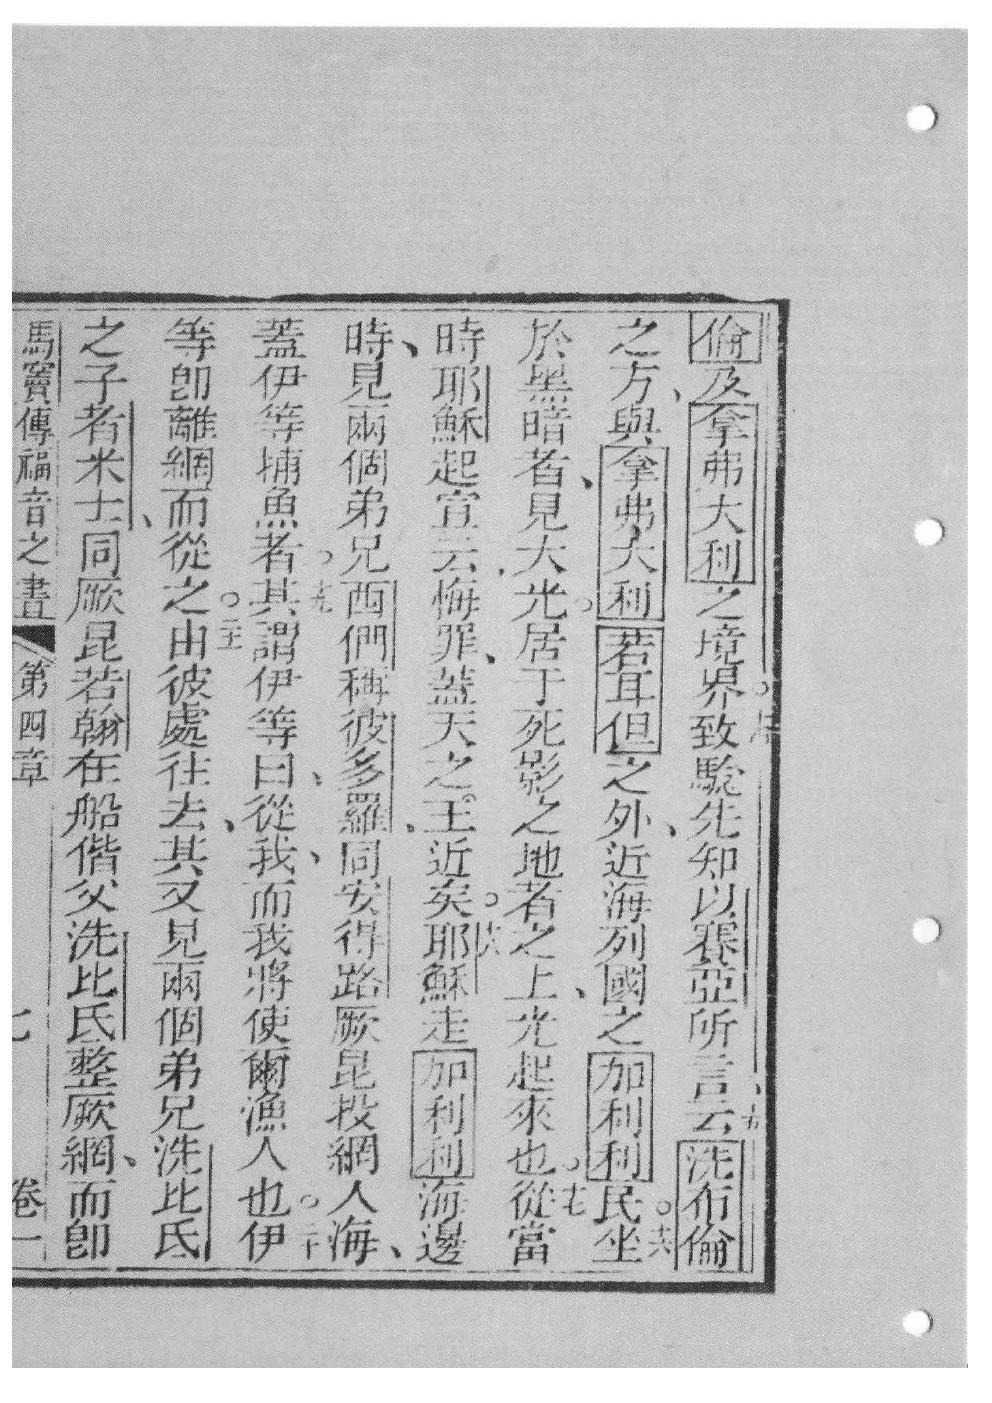 倫及拿弗大利之境界○十四致驗先知以賽亞所言、云十五洗布倫
之方、與拿弗大利若耳但之外、近海列國之加利利○十六民坐
於黑暗者、見大光○居于死影之地者之上、光起來也○十七從當
時耶穌起宣云、悔罪、蓋天之王近矣○十八耶穌走加利利海邊
時、見兩個弟兄西們稱彼多羅、同安得路厥昆投網人海、
蓋伊等捕魚者○十九其謂伊等曰、從我、而我將使爾漁人也○二十伊
等卽離網而從之○二十一由彼處往去、其又見兩個弟兄洗比氏
之子者米士、同厥昆若翰在船偕父洗比氏整厥網、而卽
馬竇傳福音之書 第四章 七 卷一